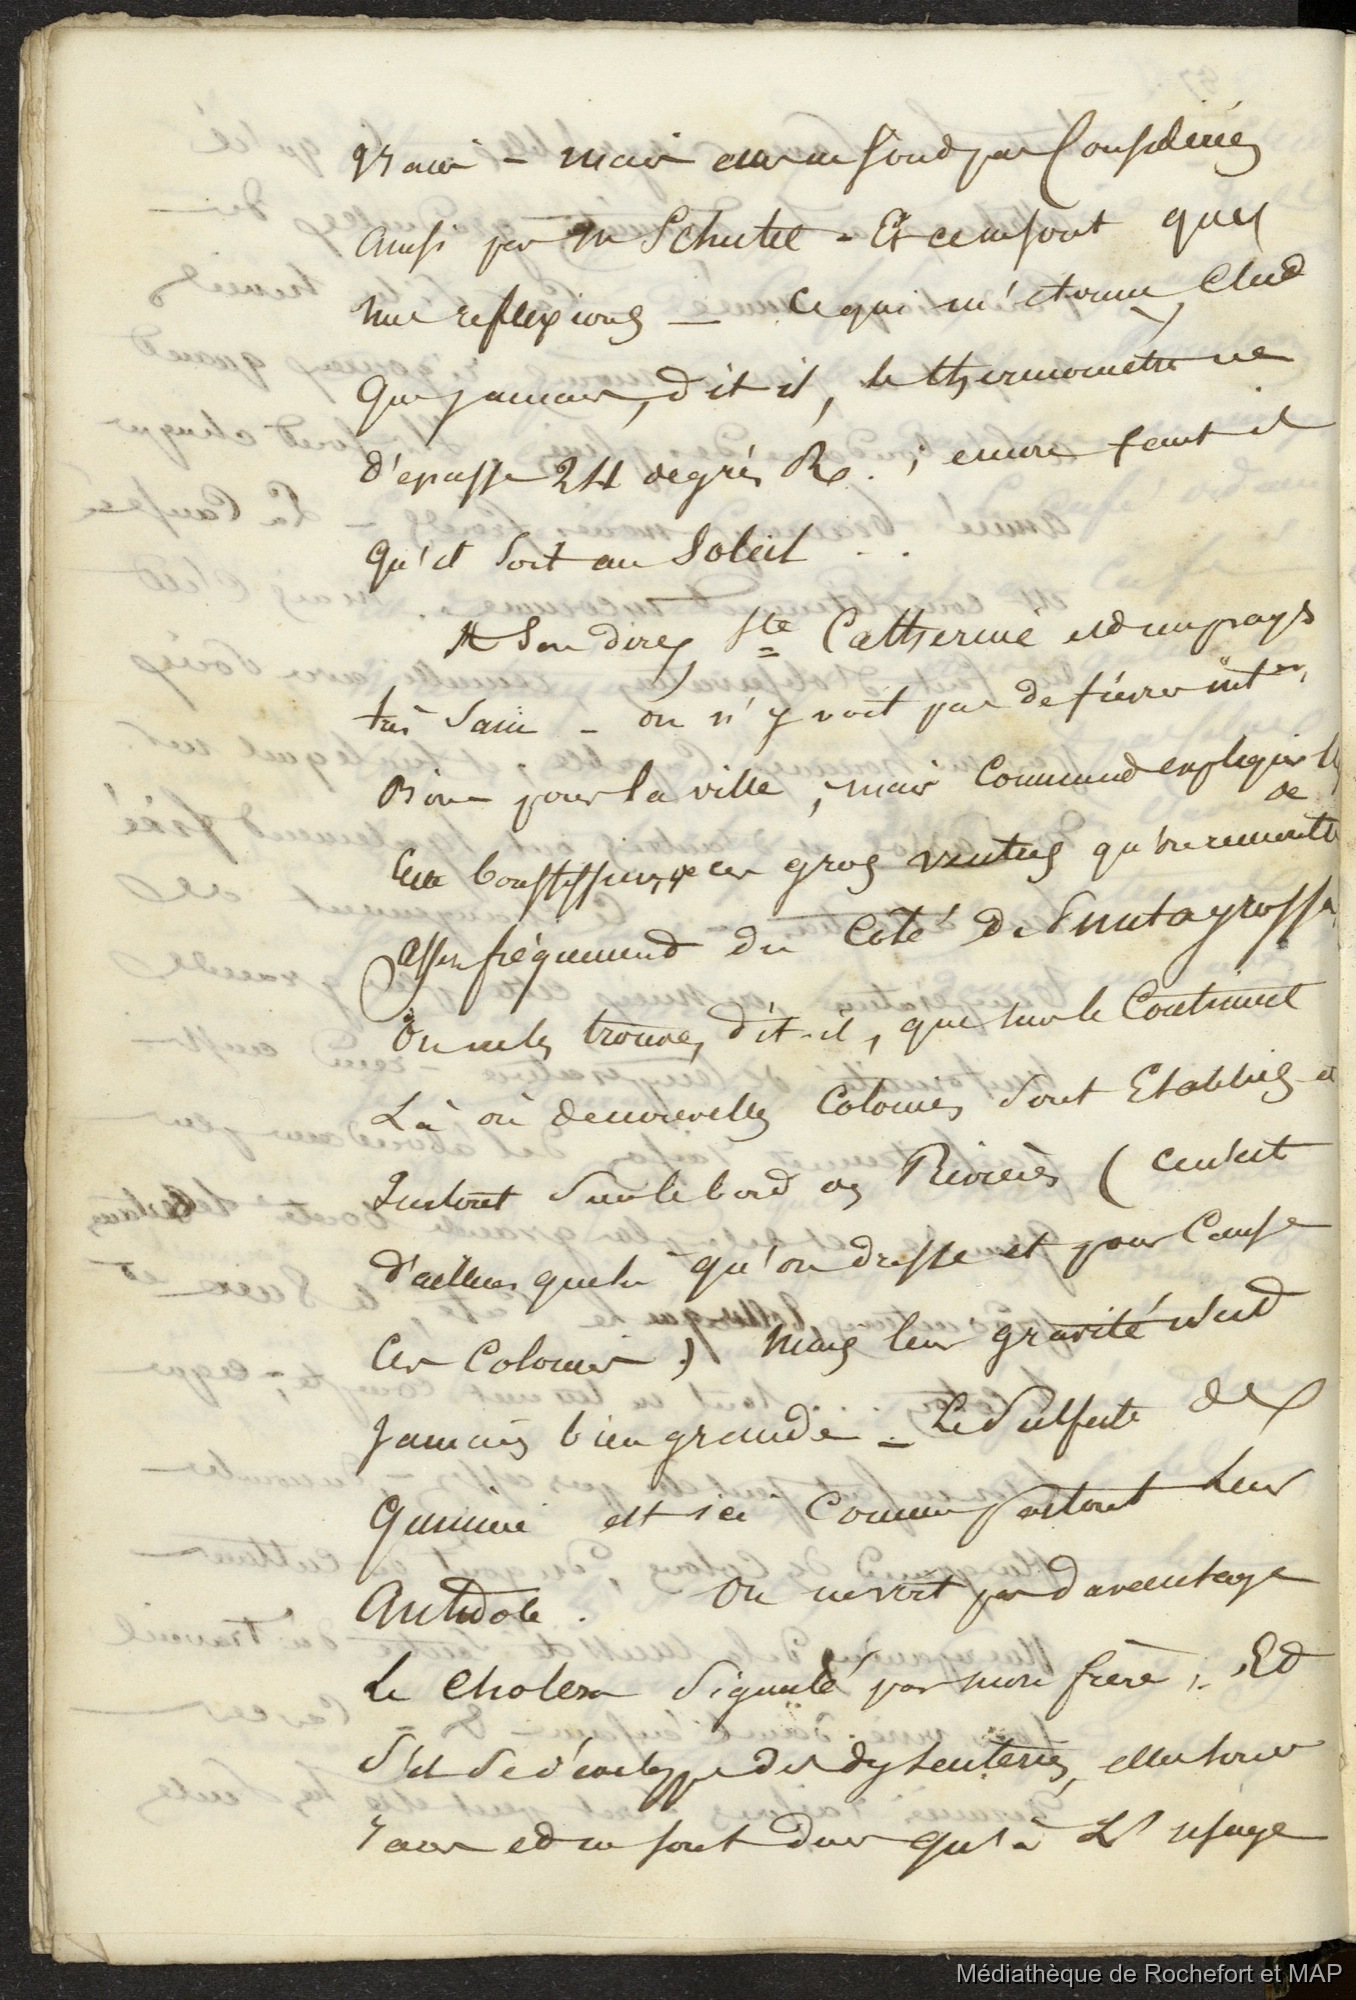 vrais - mais elles ne sont pas considérées
ainsi par Mr Schutel - Et ce ne sont que
mes reflexions - Ce qui m'étonne, C'est
que jamais, dit il, le thermomètre ne
dépasse 24 degrés R. ; encore faut il
qu'il soit au Soleil . .
A Son dire, Ste Catherine est un pays
très Sain - on n'y voit pas de fièvres inter,
Bien pour la ville, mais Comment expliquer
ces bouffissures, ces gros ventres qu'on remonte de
assez fréquemment du Côté de Puntagrossa
On ne les trouve, dit-il, que sur le Continent
Là où de nouvelles Colonies Sont Etablies et
Surtout Sur le bord des Rivières ( ce n'est
d'ailleurs que là qu'on dresse et pour Cause
Ces Colonies ) Mais leur gravité n'est
Jamais bien grande - Le Sulfate de
Quinine est ici Comme partout leur
Antidote . On ne voit pas d'avantage
le Cholera Signalé par mon frère ; Et
S'il Se développe des dysenteries, elles sont
rares et ne sont dues qu'à L'usage
Médiathèque de Rochefort et MAP